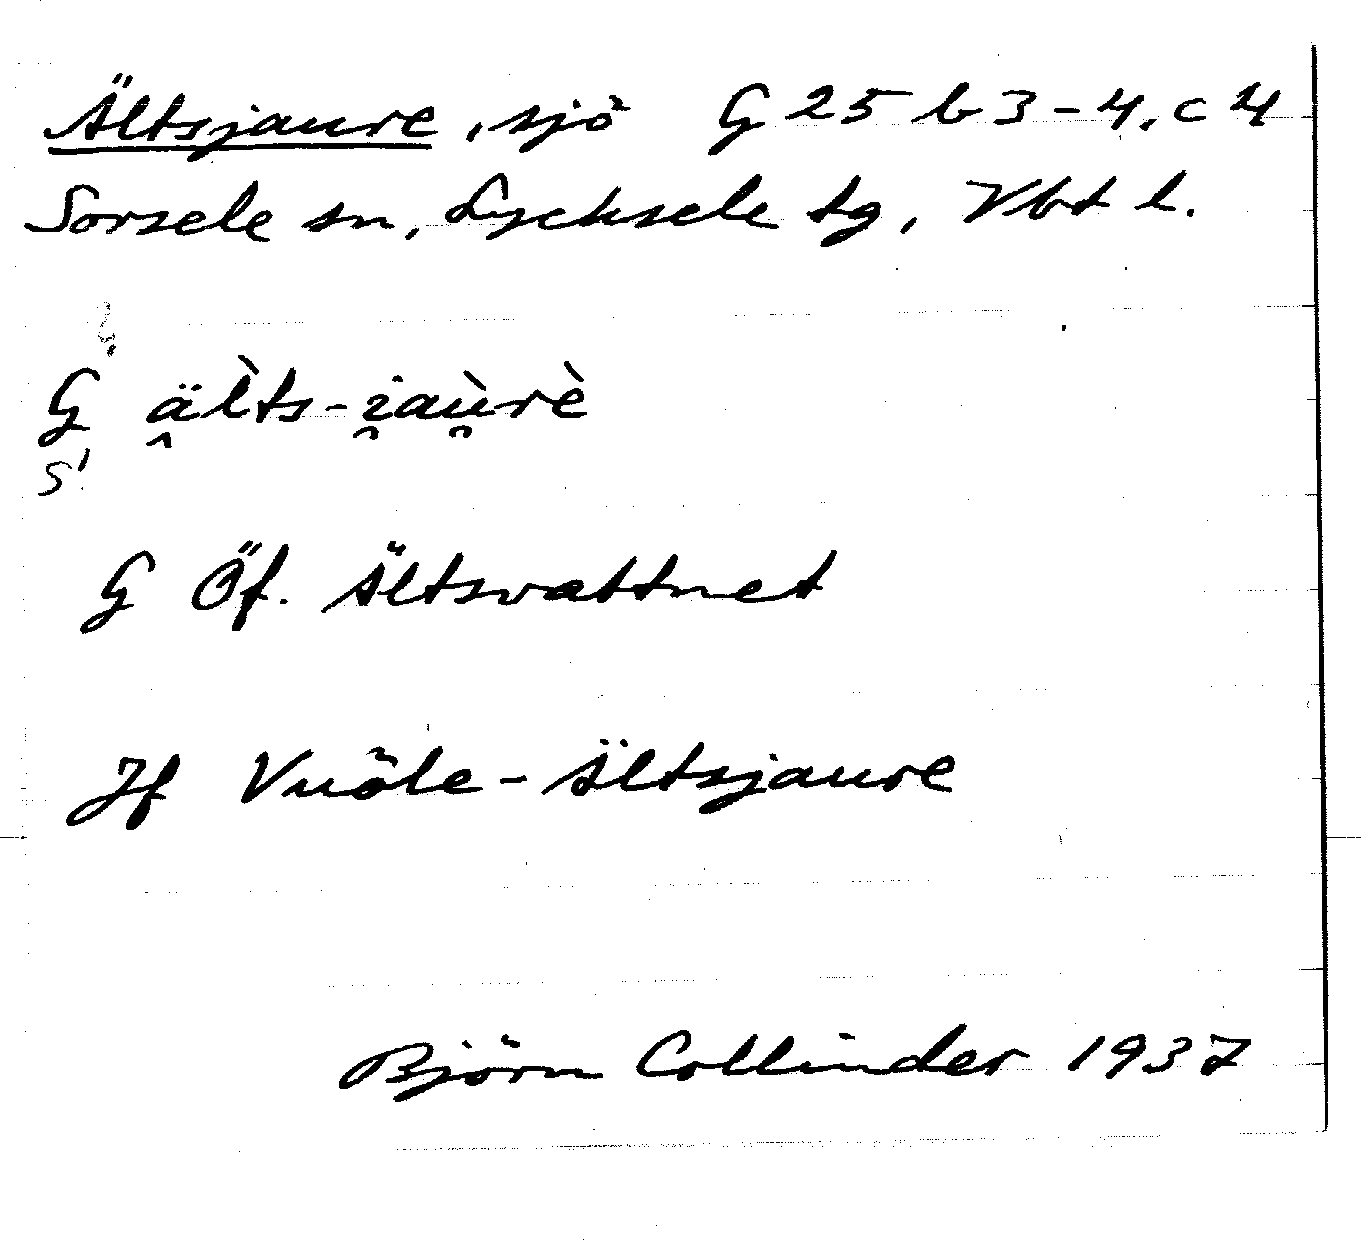 Ältsjaure, sjö G 25 b 3-4, c 4
Sorsele sn, Lycksele tg, Vbt l.
G ä̭l̀ts-i̯aù̯rè
S!
G Öf. Ältsvattnet
Jf Vuôle-Ältsjaure
Björn Collinder 1937